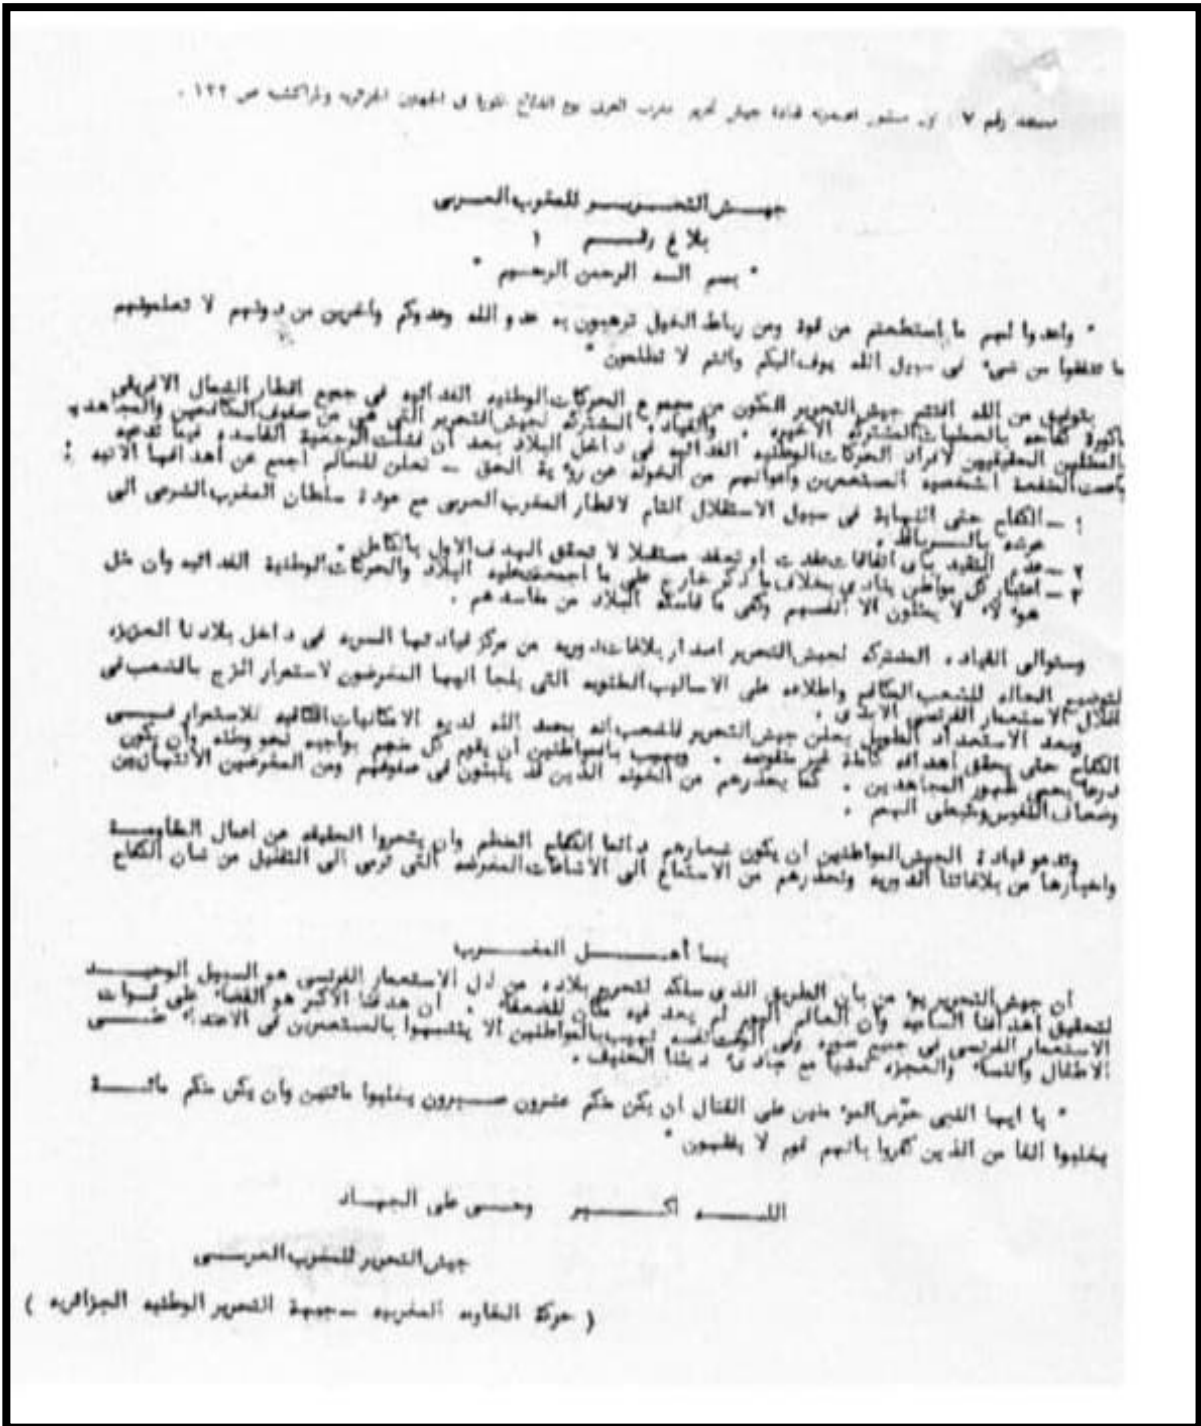 مستند رقم ٧ : أول منشور أصدرته قيادة جيش تحرير مغرب العربى يوم الفاتح ثورة فى الجبهتين الجزائرية والمراكشية ص ١٢٢ .
جيش التحرير للمغرب العربى
بلاغ رقم ١
" بسم الله الرحمن الرحيم "
" واعدوا لهم ما استطعتم من قوة ومن رباط الخيل ترهبون به عدو الله وعدوكم واخرين من دونهم لا تعلمونهم
ما تنفقوا من شىء فى سبيل الله يوف اليكم وانتم لا تظلمون "
بتوفيق من الله افتتح جيش التحرير المكون من مجموع الحركات الوطنيه الفدائيه فى جميع اقطار الشمال الافريقى
باكورة كفاحه بالعمليات المشتركه الاخيره . والقياده المشتركه لجيش التحرير التى هى من صفوف المكافحين والمجاهدين
الممثلين الحقيقيين لافراد الحركات الوطنيه الفدائيه فى داخل البلاد بعد أن فشلت الرجعية الفاسده فيما تدعيه
المستعمرين واعوانهم من الخونه عن رؤية الحق – تعلن للعالم اجمع عن أهدافها الاتيه :
١ – الكفاح حتى النهاية فى سبيل الاستقلال التام لاقطار المغرب العربى مع عودة سلطان المغرب الشرعى الى
عرشه بالرباط .
٢ – عدم التقيد بأى اتفاقات عقدت او تعقد مستقبلا لا تحقق الهدف الاول بالكامل .
٣ – اعتبار كل مواطن ينادى بخلاف ما ذكر خارج على ما اجمعت عليه البلاد والحركات الوطنية الفدائيه وان مثل
هؤلاء لا يمثلون الا انفسهم وكفى ما قاسته البلاد من مفاسدهم .
وستوالى القياده المشتركه لجيش التحرير اصدار بلاغات دوريه من مركز قيادتها السريه فى داخل بلادنا العزيزه
لتوضيح الحاله للشعب المكافح واطلاعه على الاساليب الملتويه التى يلجا اليها المغرضون لاستمرار الزج بالشعب فى
اغلال الاستعمار الفرنسى الابدى .
وبعد الاستعداد الطويل يعلن جيش التحرير للشعب انه بحمد الله لديه الامكانيات الكافيه للاستمرار فى
الكفاح حتى يحقق اهدافه كاملة غير منقوصه . ويهيب بالمواطنين ان يقوم كل منهم بواجبه نحو وطنه وأن يكون
درعا يحمى ظهور المجاهدين . كما يحذرهم من الخونه الذين قد يلبثون فى صفوفهم ومن المغرضين الأنتهازيين
وضعاف النفوس ومثبطى الهمم .
وتدعو قيادة الجيش المواطنين ان يكون شعارهم دائما الكفاح المنظم وان يتحروا الحقيقه عن اعمال المقاومة
واخبارها من بلاغاتنا الدوريه ونحذرهم من الاستماع الى الاشاعات المغرضه التى ترمى الى التقليل من شان الكفاح
يا أهل المغرب
ان جيش التحرير يؤمن بان الطريق الذى سلكه لتحرير بلاده من ذل الاستعمار الفرنسى هو السبيل الوحيد
لتحقيق اهدافنا الساميه وأن العالم اليوم لم يعد فيه مكان للضعفاء . ان هدفنا الأكبر هو القضاء على قوات
الاستعمار الفرنسى فى جميع صوره وفى الوقت نفسه نهيب بالمواطنين ألا يتشبهوا بالمستعمرين فى الاعتداء على
الاطفال والنساء والعجزه تمشيا مع مبادىء ديننا الحنيف .
" يا ايها النبى حرّض المؤمنين على القتال ان يكن منكم عشرون صبرون يغلبوا مائتين وان يكن منكم مائة
يغلبوا الفا من الذين كفروا بانهم قوم لا يفقهون "
الله اكبر وحى على الجهاد
جيش التحرير للمغرب العربى
( حركة المقاومه المغربيه – جبهة التحرير الوطنيه الجزائريه )